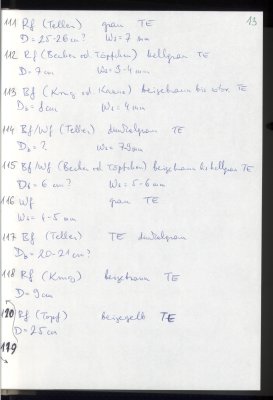 13
111 Rf (Teller) grau TE
D = 25-26 cm? Ws = 7 mm
112 Rf (Becher od. Töpfchen) hellgrau TE
D = 7cm Ws = 3-4 mm
113 Bf (Krug od. Kanne) beigebraun bis TE
Db = 8cm Ws = 4 mm
114 Bf/Wf (Teller) dunkelgrau TE
Db = ? Ws = 7-9 mm
115 Bf/Wf (Becher od. Töpfchen) beigebraun bis hellgrau TE
Db = 6 cm? Ws = 5-6 mm
116 Wf grau TE
Ws = 4-5 mm
117 Bf (Teller) TE dunkelgrau
Db = 20-21 cm?
118 Rf (Krug) beigebraun TE
D = 9cm
120 Rf (Topf) beigegelb TE
D = 25cm
119